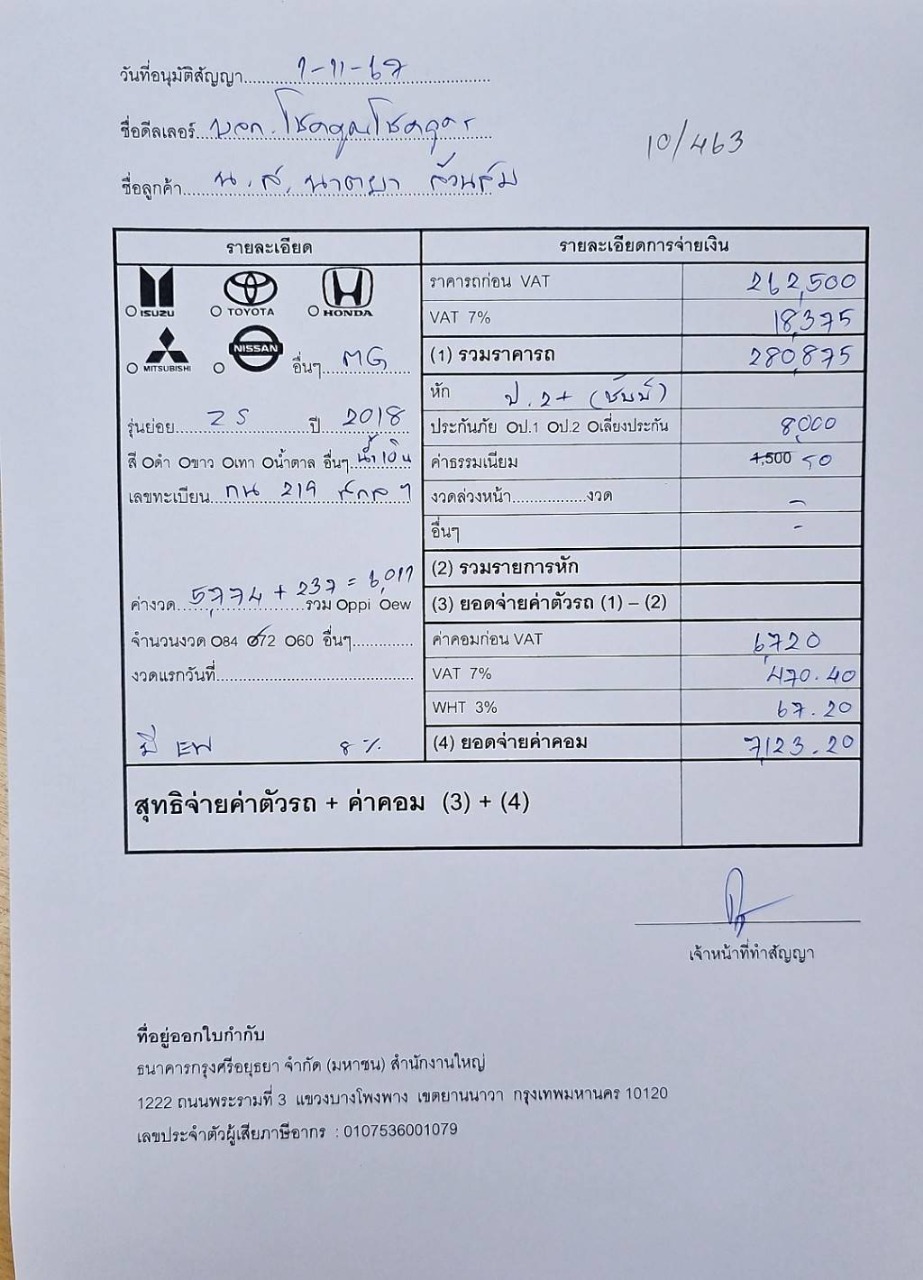 วันที่อนุมัติสัญญา 7-11-67
ชื่อดีลเลอร์ บจก. โชคคูณโชคอุดร
10/463
ชื่อลูกค้า น.ส. นาตยา ล้วนส้ม
รายละเอียด
รายละเอียดการจ่ายเงิน
O ISUZU O TOYOTA O HONDA
ราคารถก่อน VAT 262,500
VAT 7% 18,375
O MITSUBISHI O NISSAN อื่นๆ MG
(1) รวมราคารถ 280,875
หัก ป.2+ (ชับบ์)
รุ่นย่อย ZS ปี 2018
ประกันภัย Oป.1 Oป.2 Oเลี่ยงประกัน 8,000
สี Oดำ Oขาว Oเทา Oน้ำตาล อื่นๆ น้ำเงิน
ค่าธรรมเนียม 1,500 50
เลขทะเบียน กน 219
งวดล่วงหน้า................งวด -
อื่นๆ -
(2) รวมรายการหัก
ค่างวด 5,774 + 237 = 6,011 รวม Oppi Oew
(3) ยอดจ่ายค่าตัวรถ (1) – (2)
จำนวนงวด O84 O72 O60 อื่นๆ..............
ค่าคอมก่อน VAT 6,720
งวดแรกวันที่..............................................
VAT 7% 470.40
WHT 3% 67.20
มี EW 8%
(4) ยอดจ่ายค่าคอม 7,123.20
สุทธิจ่ายค่าตัวรถ + ค่าคอม (3) + (4)
เจ้าหน้าที่ทำสัญญา
ที่อยู่ออกใบกำกับ
ธนาคารกรุงศรีอยุธยา จำกัด (มหาชน) สำนักงานใหญ่
1222 ถนนพระรามที่ 3 แขวงบางโพงพาง เขตยานนาวา กรุงเทพมหานคร 10120
เลขประจำตัวผู้เสียภาษีอากร : 0107536001079